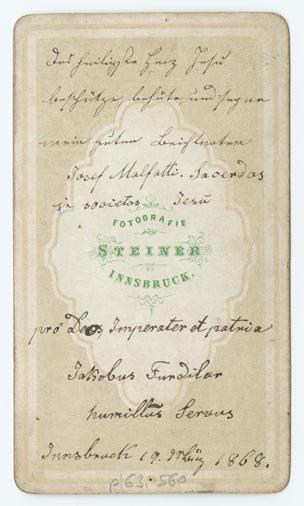 Das heiligste Herz Jesu
beschütze, behüte und segne
mein guten Beichtvater
Josef Malfatti. Sacerdos
societas Jesu
FOTOGRAFIE
STEINER
INNSBRUCK.
pro Deo, Imperater et patria
Jakobus
humillus Servus
Innsbruck 19. März 1868.